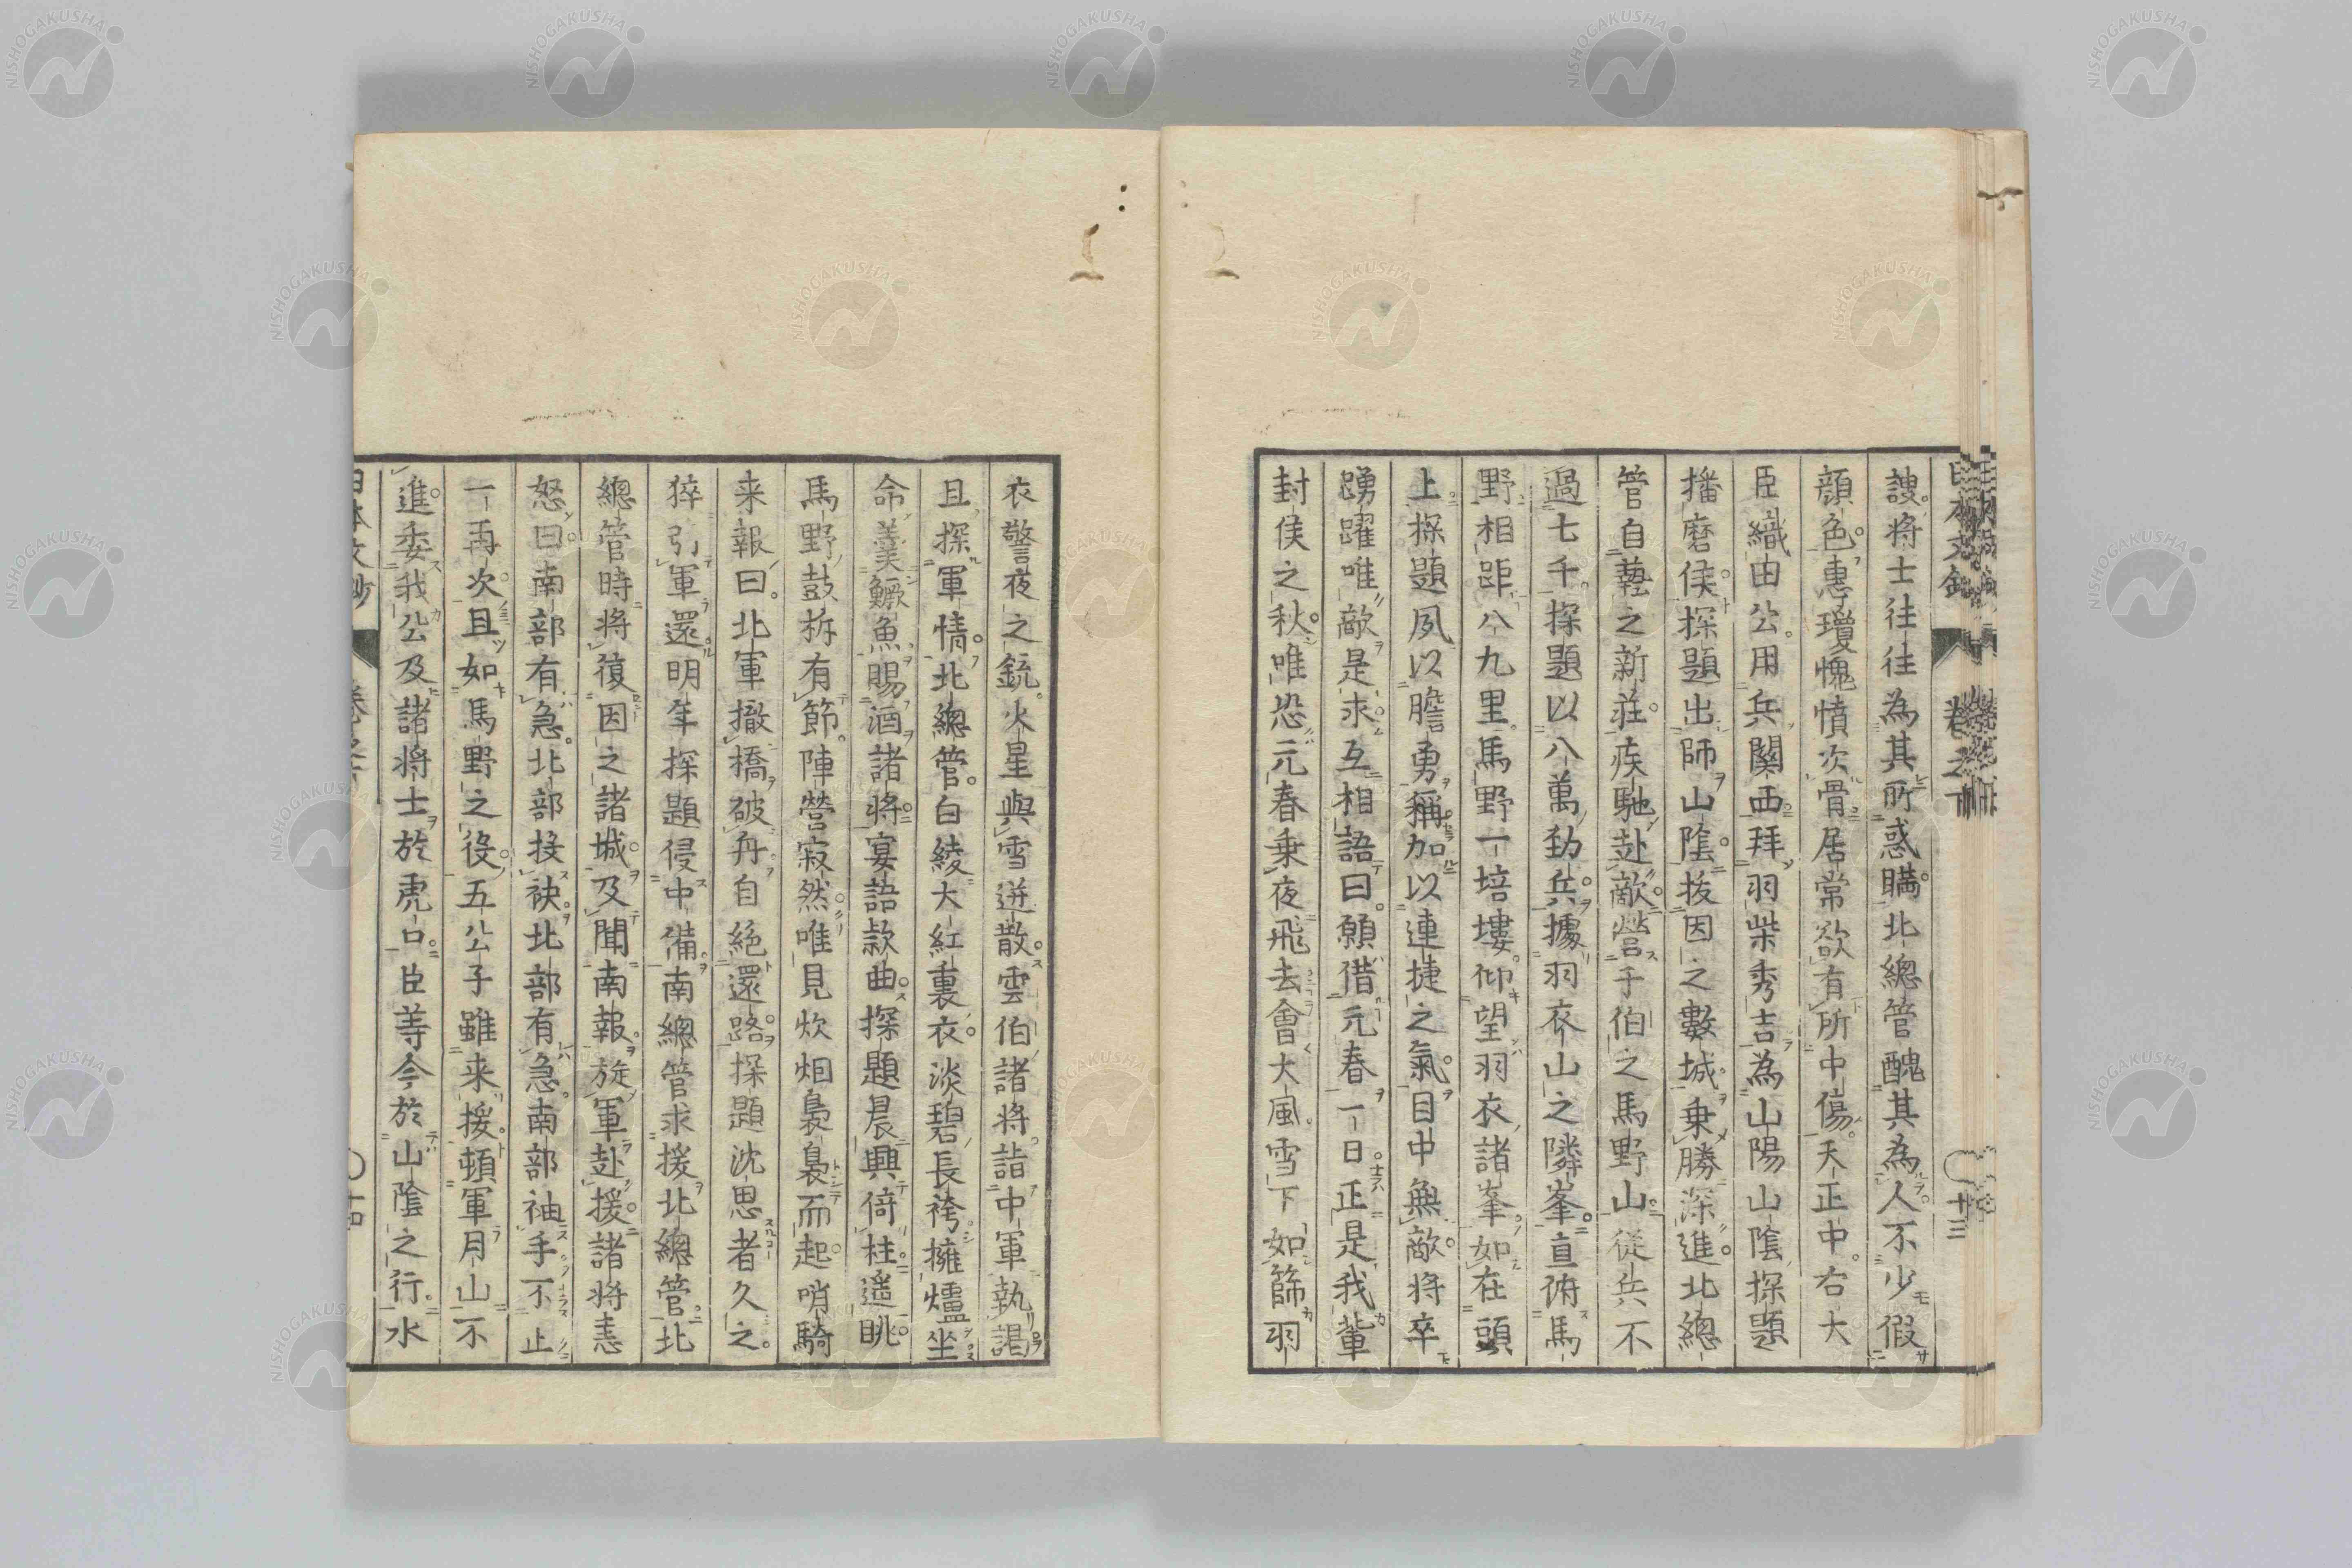 諛將士往往為其所惑瞞北總管醜其為人不少假
顔色惠瓊愧憤次骨居常欲有所中傷天正中右大
臣織田公用兵關西拜羽柴秀吉為山陽山陰探題
播磨侯探題出師山陰拔因之數城乘勝深進北總
管自藝之新莊疾馳赴敵營于伯之馬野山從兵不
過七千探題以八萬勁兵據羽衣山之隣峯直俯馬
野相距八九里馬野一培塿仰望羽衣諸峯如在頭
上探題夙以膽勇稱加以連捷之氣目中無敵將卒
踴躍唯敵是求互相語曰願借元春一日正是我輩
封侯之秋唯恐元春乘夜飛去會大風雪下如篩羽
日本文鈔 卷之下 十三
衣警夜之銃火星與雪迸散雲伯諸將詣中軍執謁
且探軍情北總管白綾大紅裏衣淡碧長袴擁爐坐
命羹鱖魚賜酒諸將宴語款曲探題晨興倚柱遥眺
馬野鼓柝有節陣營寂然唯見炊烟裊裊而起哨騎
来報曰北軍撤橋破舟自絶還路探題沈思者久之
猝引軍還明年探題侵中備南總管求援北總管北
總管時將復因之諸城及聞南報旋軍赴援諸將恚
怒曰南部有急北部投袂北部有急南部袖手不止
一再次且如馬野之役五公子雖来援頓軍月山不
進委我公及諸將士於虎口臣等今於山陰之行水
日本文鈔 卷之下 十四
NISHOGAKUSHA